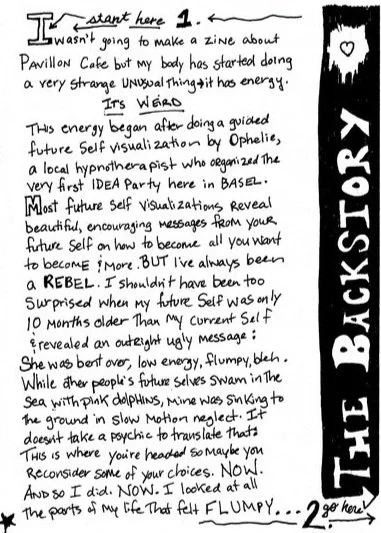 start here 1.
I wasn't going to make a zine about
Pavillon Cafe but my body has started doing
a very strange unusual thing → it has energy.
It's Weird
This energy began after doing a guided
future self visualization by Ophelie,
a local hypnotherapist who organized the
very first IDEA Party here in BASEL.
Most future self visualizations reveal
beautiful, encouraging messages from your
future self on how to become all you want
to become & more. BUT I've always been
a REBEL. I shouldn't have been too
surprised when my future self was only
10 months older than my current self
& revealed an outright ugly message:
She was bent over, low energy, flumpy, bleh.
While other people's future selves swam in the
sea with pink dolphins, mine was sinking to
the ground in slow motion neglect. It
doesn't take a psychic to translate that:
This is where you're headed so maybe you
reconsider some of your choices. NOW.
And so I did. NOW. I looked at all
the parts of my life that felt FLUMPY...
2. go here!
THE BACKSTORY